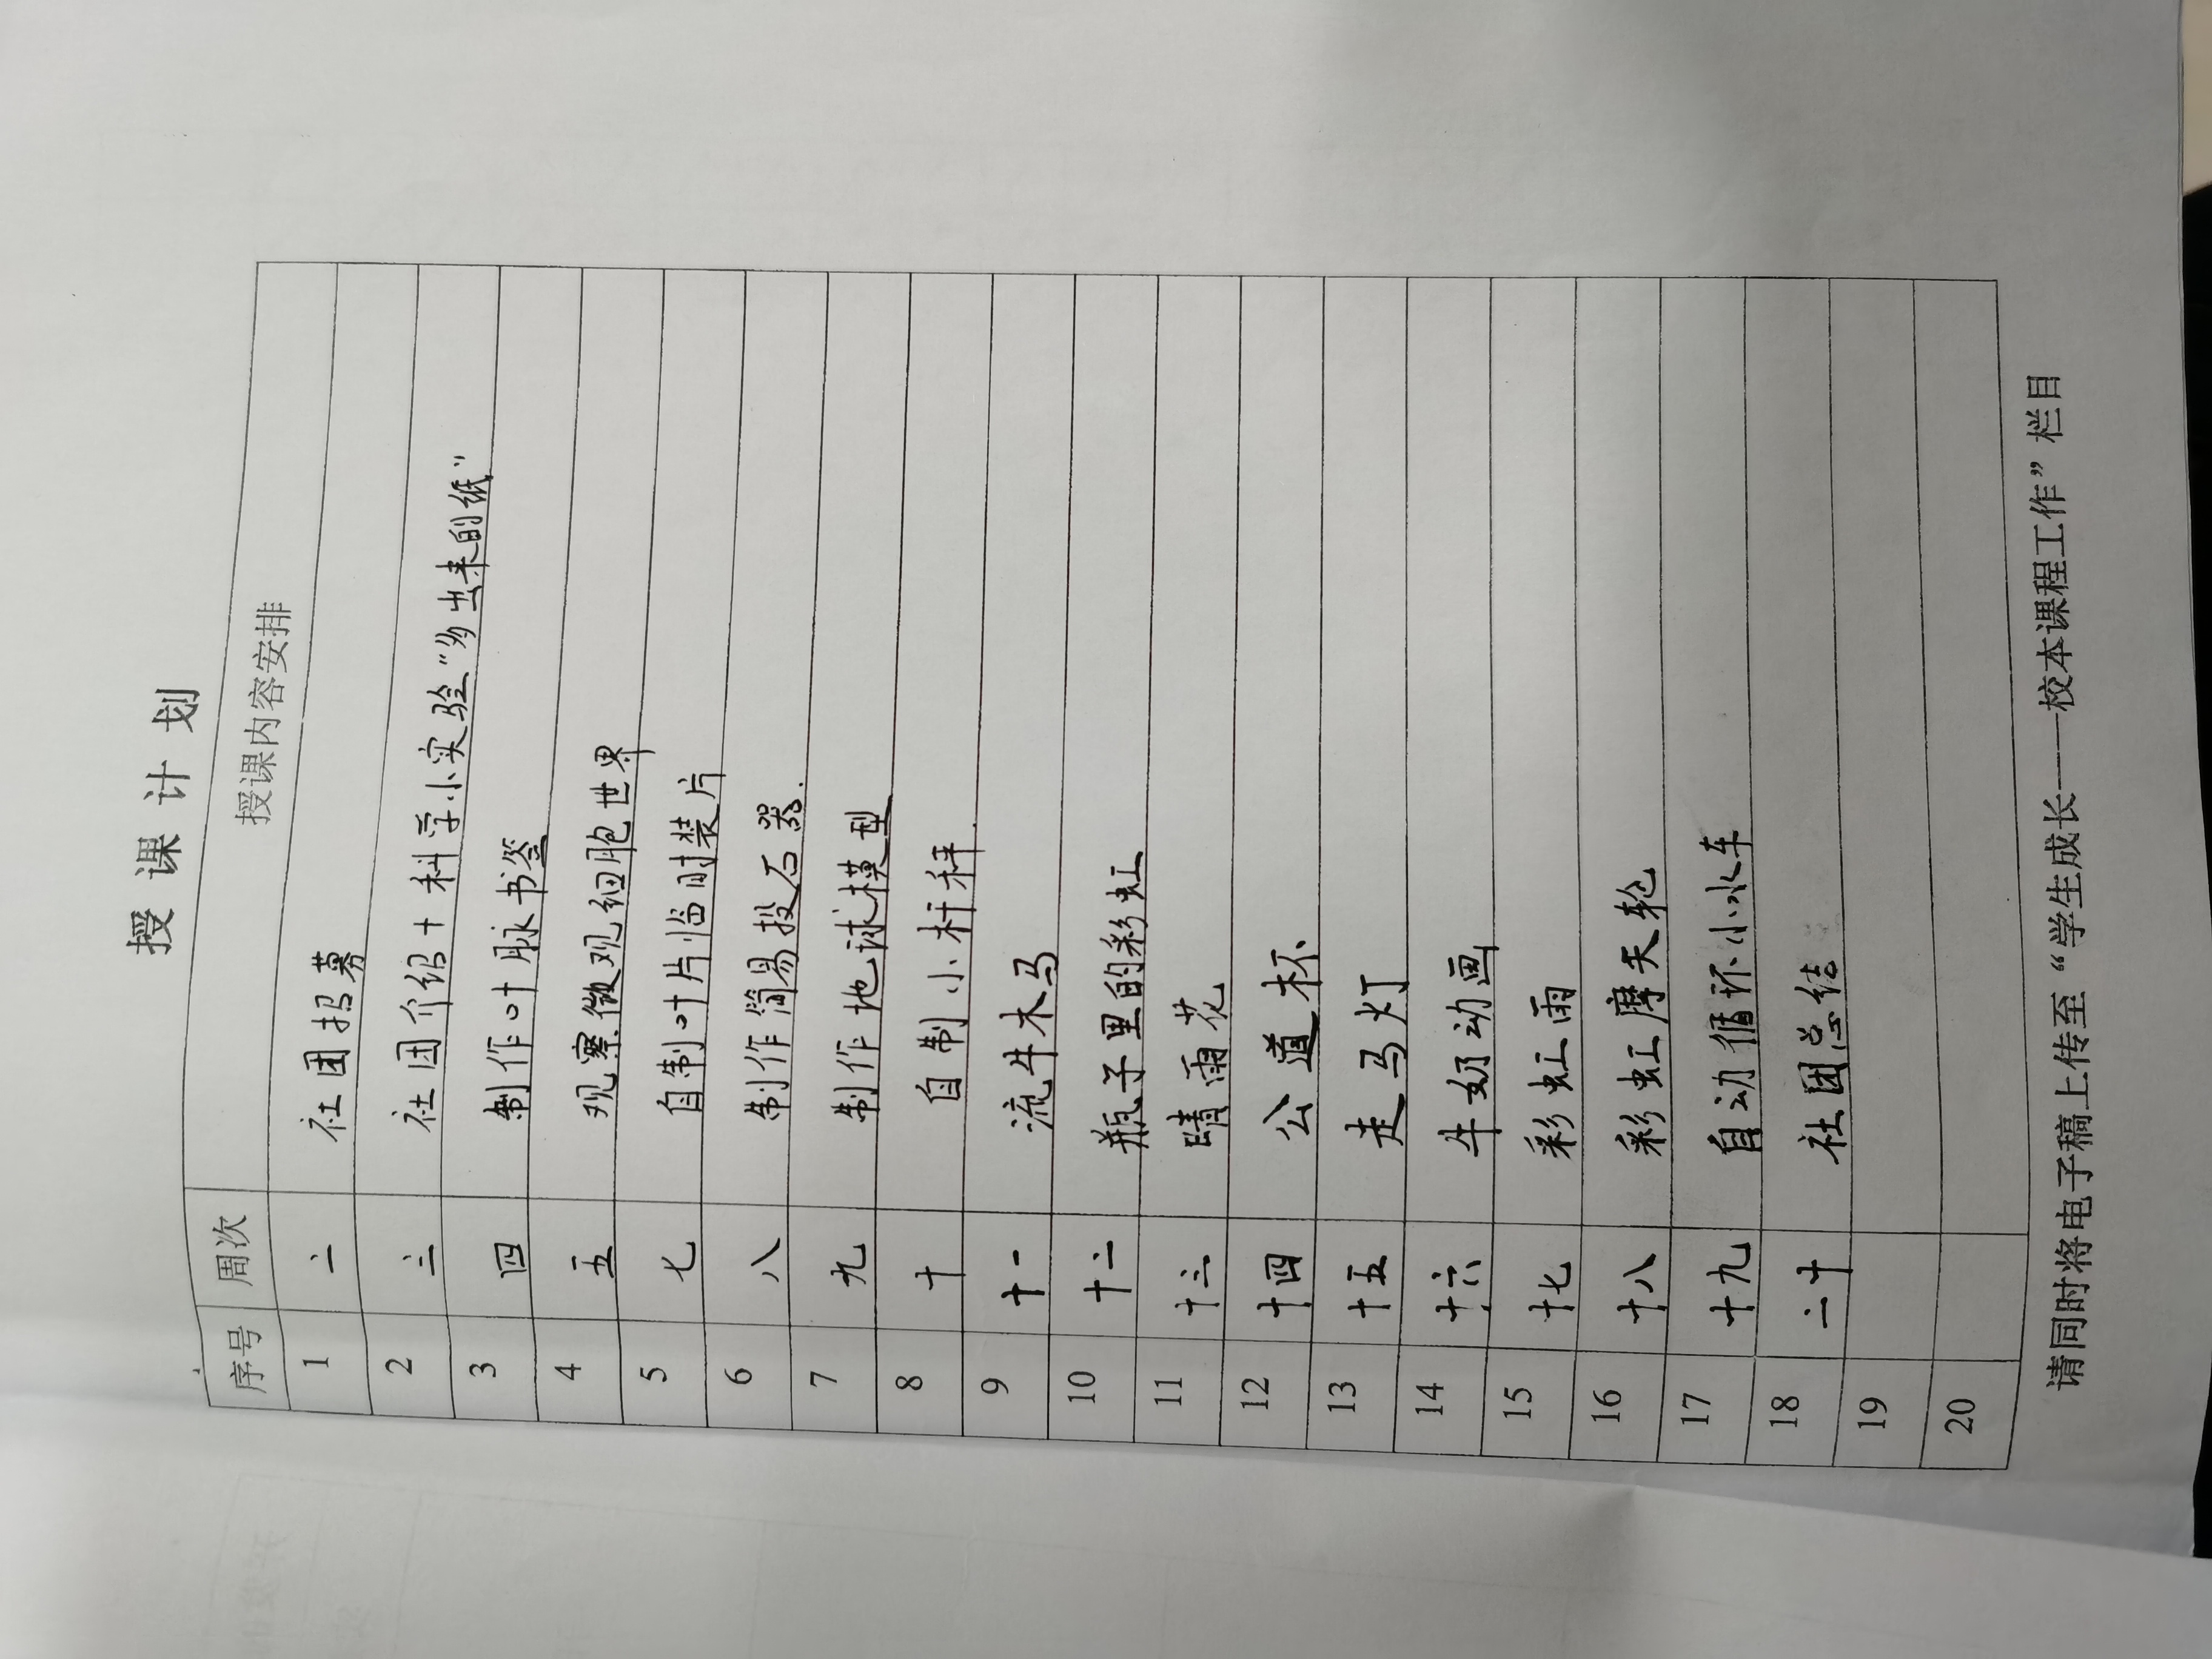 授课计划
序号 周次 授课内容安排
1 二 社团招募
2 三 社团介绍+科学小实验“多出来的纸”
3 四 制作叶脉书签
4 五 观察微观细胞世界
5 七 自制叶片临时装片
6 八 制作简易投石器.
7 九 制作地球模型
8 十 自制小杆秤
9 十一 流牛木马
10 十二 瓶子里的彩虹
11 十三 晴雨花
12 十四 公道杯
13 十五 走马灯
14 十六 牛奶动画
15 十七 彩虹雨
16 十八 彩虹摩天轮
17 十九 自动循环小水车
18 二十 社团总结
19
20
请同时将电子稿上传至“学生成长——校本课程工作”栏目